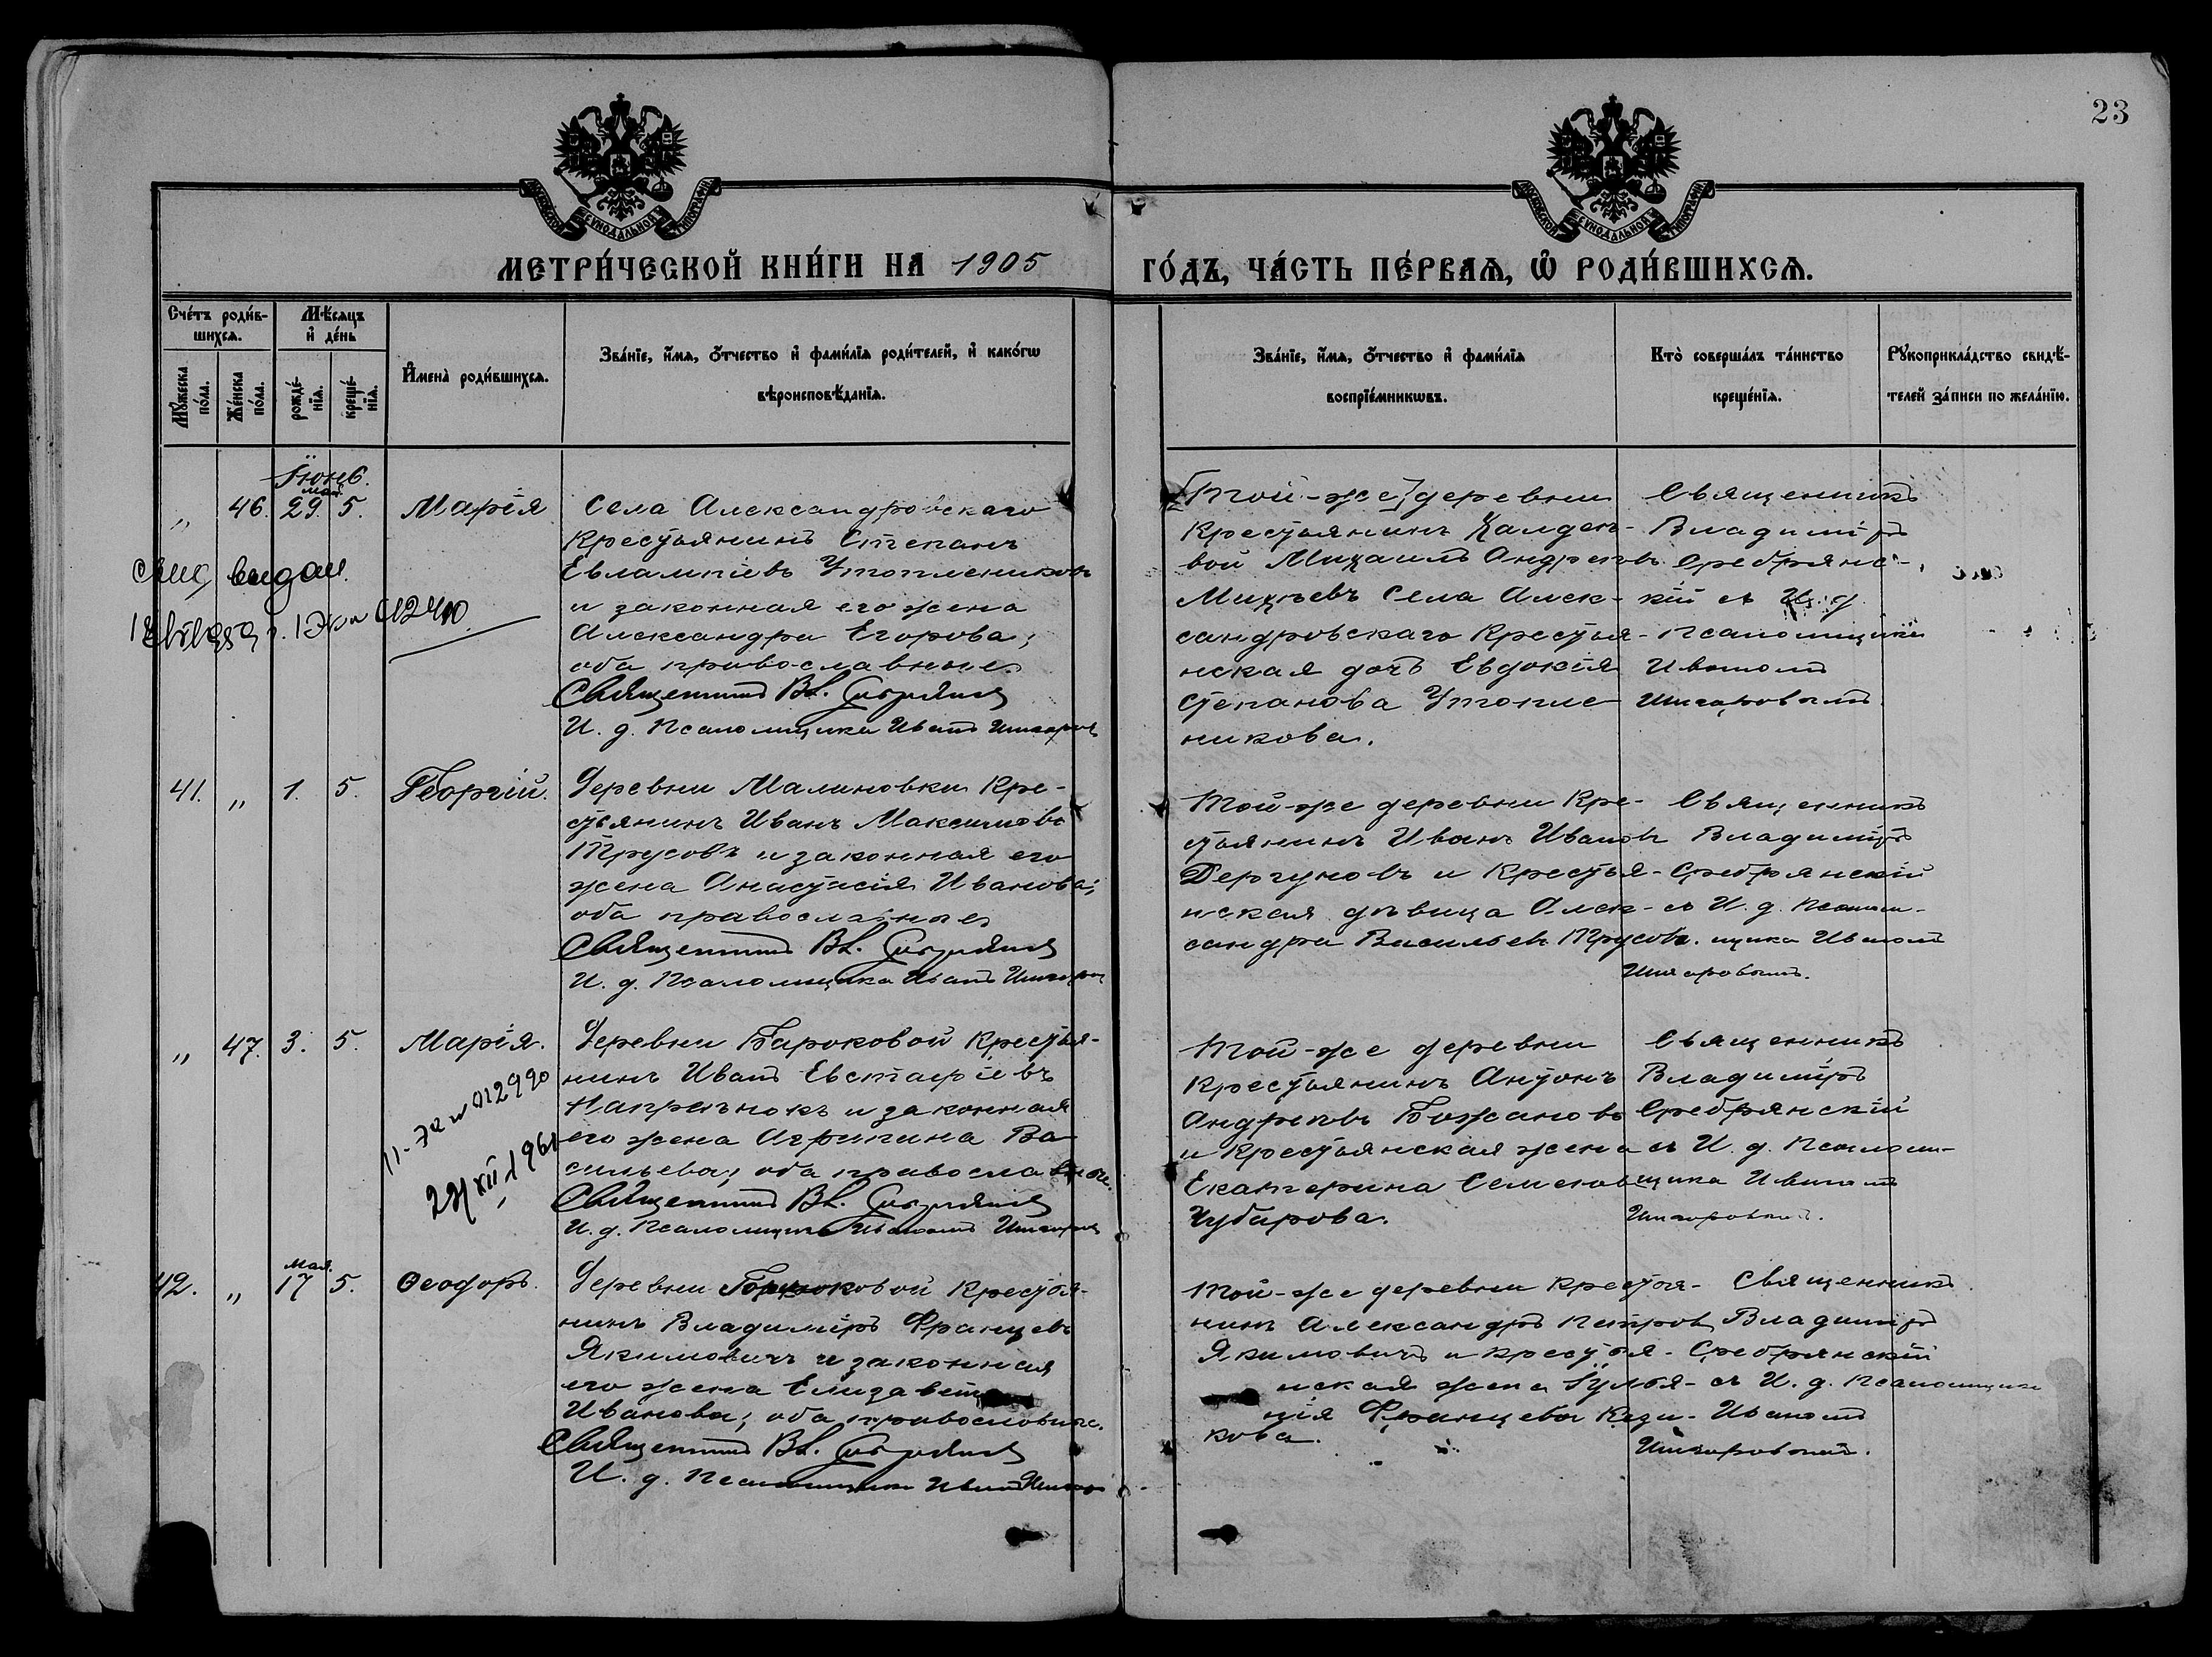 23
МОСКОВСКОЙ СѴНОДАЛЬНОЙ ТИПОГРАФІИ
МОСКОВСКОЙ СѴНОДАЛЬНОЙ ТИПОГРАФІИ
МЕТРИ́ЧЕСКОЙ КНИ́ГИ НА 1905
ГО́ДЪ, ЧА́СТЬ ПЕ́РВАѦ, Ѡ҆ РОДИ́ВШИХСѦ.
Сче́тъ роди́в-
шихсѧ.
Мꙋ́жеска по́ла.
Же́нска по́ла.
Мѣ́сѧцъ
и҆ де́нь
рожде́-
нїѧ.
креще́-
нїѧ.
И҆мена̀ роди́вшихсѧ.
Зва́нїе, и҆́мѧ, ѻ҆́тчество и҆ фами́лїѧ роди́телей, и҆ како́гѡ
вѣроисповѣ́данїѧ.
Зва́нїе, и҆́мѧ, ѻ҆́тчество и҆ фами́лїѧ
воспрїе́мникѡвъ.
Кто̀ соверша́лъ та́инство
креще́нїѧ.
Рꙋкоприкла́дство свидѣ́-
телей за́писи по жела́нїю.
Іюнь.
мая
„ 46. 29. 5. Марія
Села Александровскаго
Крестьянинъ Степанъ
Евлампіевъ Утоплениковъ
и законная его жена
Александра Егорова;
оба православные.
Священникъ Вл. Сребрянскій
И. д. Псаломщика Иванъ
выдан
Той-же деревни
Крестьянинъ
вой Михаилъ Андреевъ
Михѣевъ Села Алек-
сандровскаго Крестья-
нская дочь Евдокія
Степанова Утопле-
никова.
Священникъ
Владиміръ
Сребрянс-
кій съ И. д.
Псаломщикомъ
Иваномъ
41. „ 1. 5. Георгій.
Деревни Малиновки Кре-
стьянинъ Иванъ Максимовъ
Трусовъ и законная его
жена Анастасія Иванова;
оба православные
Священникъ Вл. Сребрянскій
И. д. Псаломщика Иванъ
Той-же деревни Кре-
стьянинъ Иванъ Ивановъ
Дергуновъ и Крестья-
нская дѣвица Алек-
сандра Васильев. Трусова.
Священникъ
Владиміръ
Сребрянскій
съ И. д. Псалом-
щика Иваномъ
„ 47. 3. 5. Марія.
Деревни Бароковой Крестья-
нинъ Иванъ Евстафіевъ
и законная
его жена Агрипина Ва-
сильева; оба православные.
Священникъ Вл. Сребрянскій
И. д. Псаломщика Иванъ
Той-же деревни
Крестьянинъ Антонъ
Андреевъ Божановъ
и Крестьянская жена
Екатерина Семенов.
Чубарова.
Священникъ
Владиміръ
Сребрянскій
съ И. д. Псалом-
щика Иваномъ
Мая.
42. „ 17 5. Ѳеодоръ.
Деревни Бороковой Крестья-
нинъ Владиміръ Францевъ
Якимовичъ и законная
его жена Елизавета
Иванова; оба православные.
Священникъ Вл. Сребрянскій
И. д. Псаломщика Иванъ
Той-же деревни Крестья-
нинъ Александръ Петров.
Якимовичъ и крестья-
нская жена Іулья-
нія Францева Кази-
кова.
Священникъ
Владиміръ
Сребрянскій
съ И. д. Псаломщика
Иваномъ